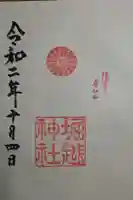 令和二年十月四日
堀越
神社